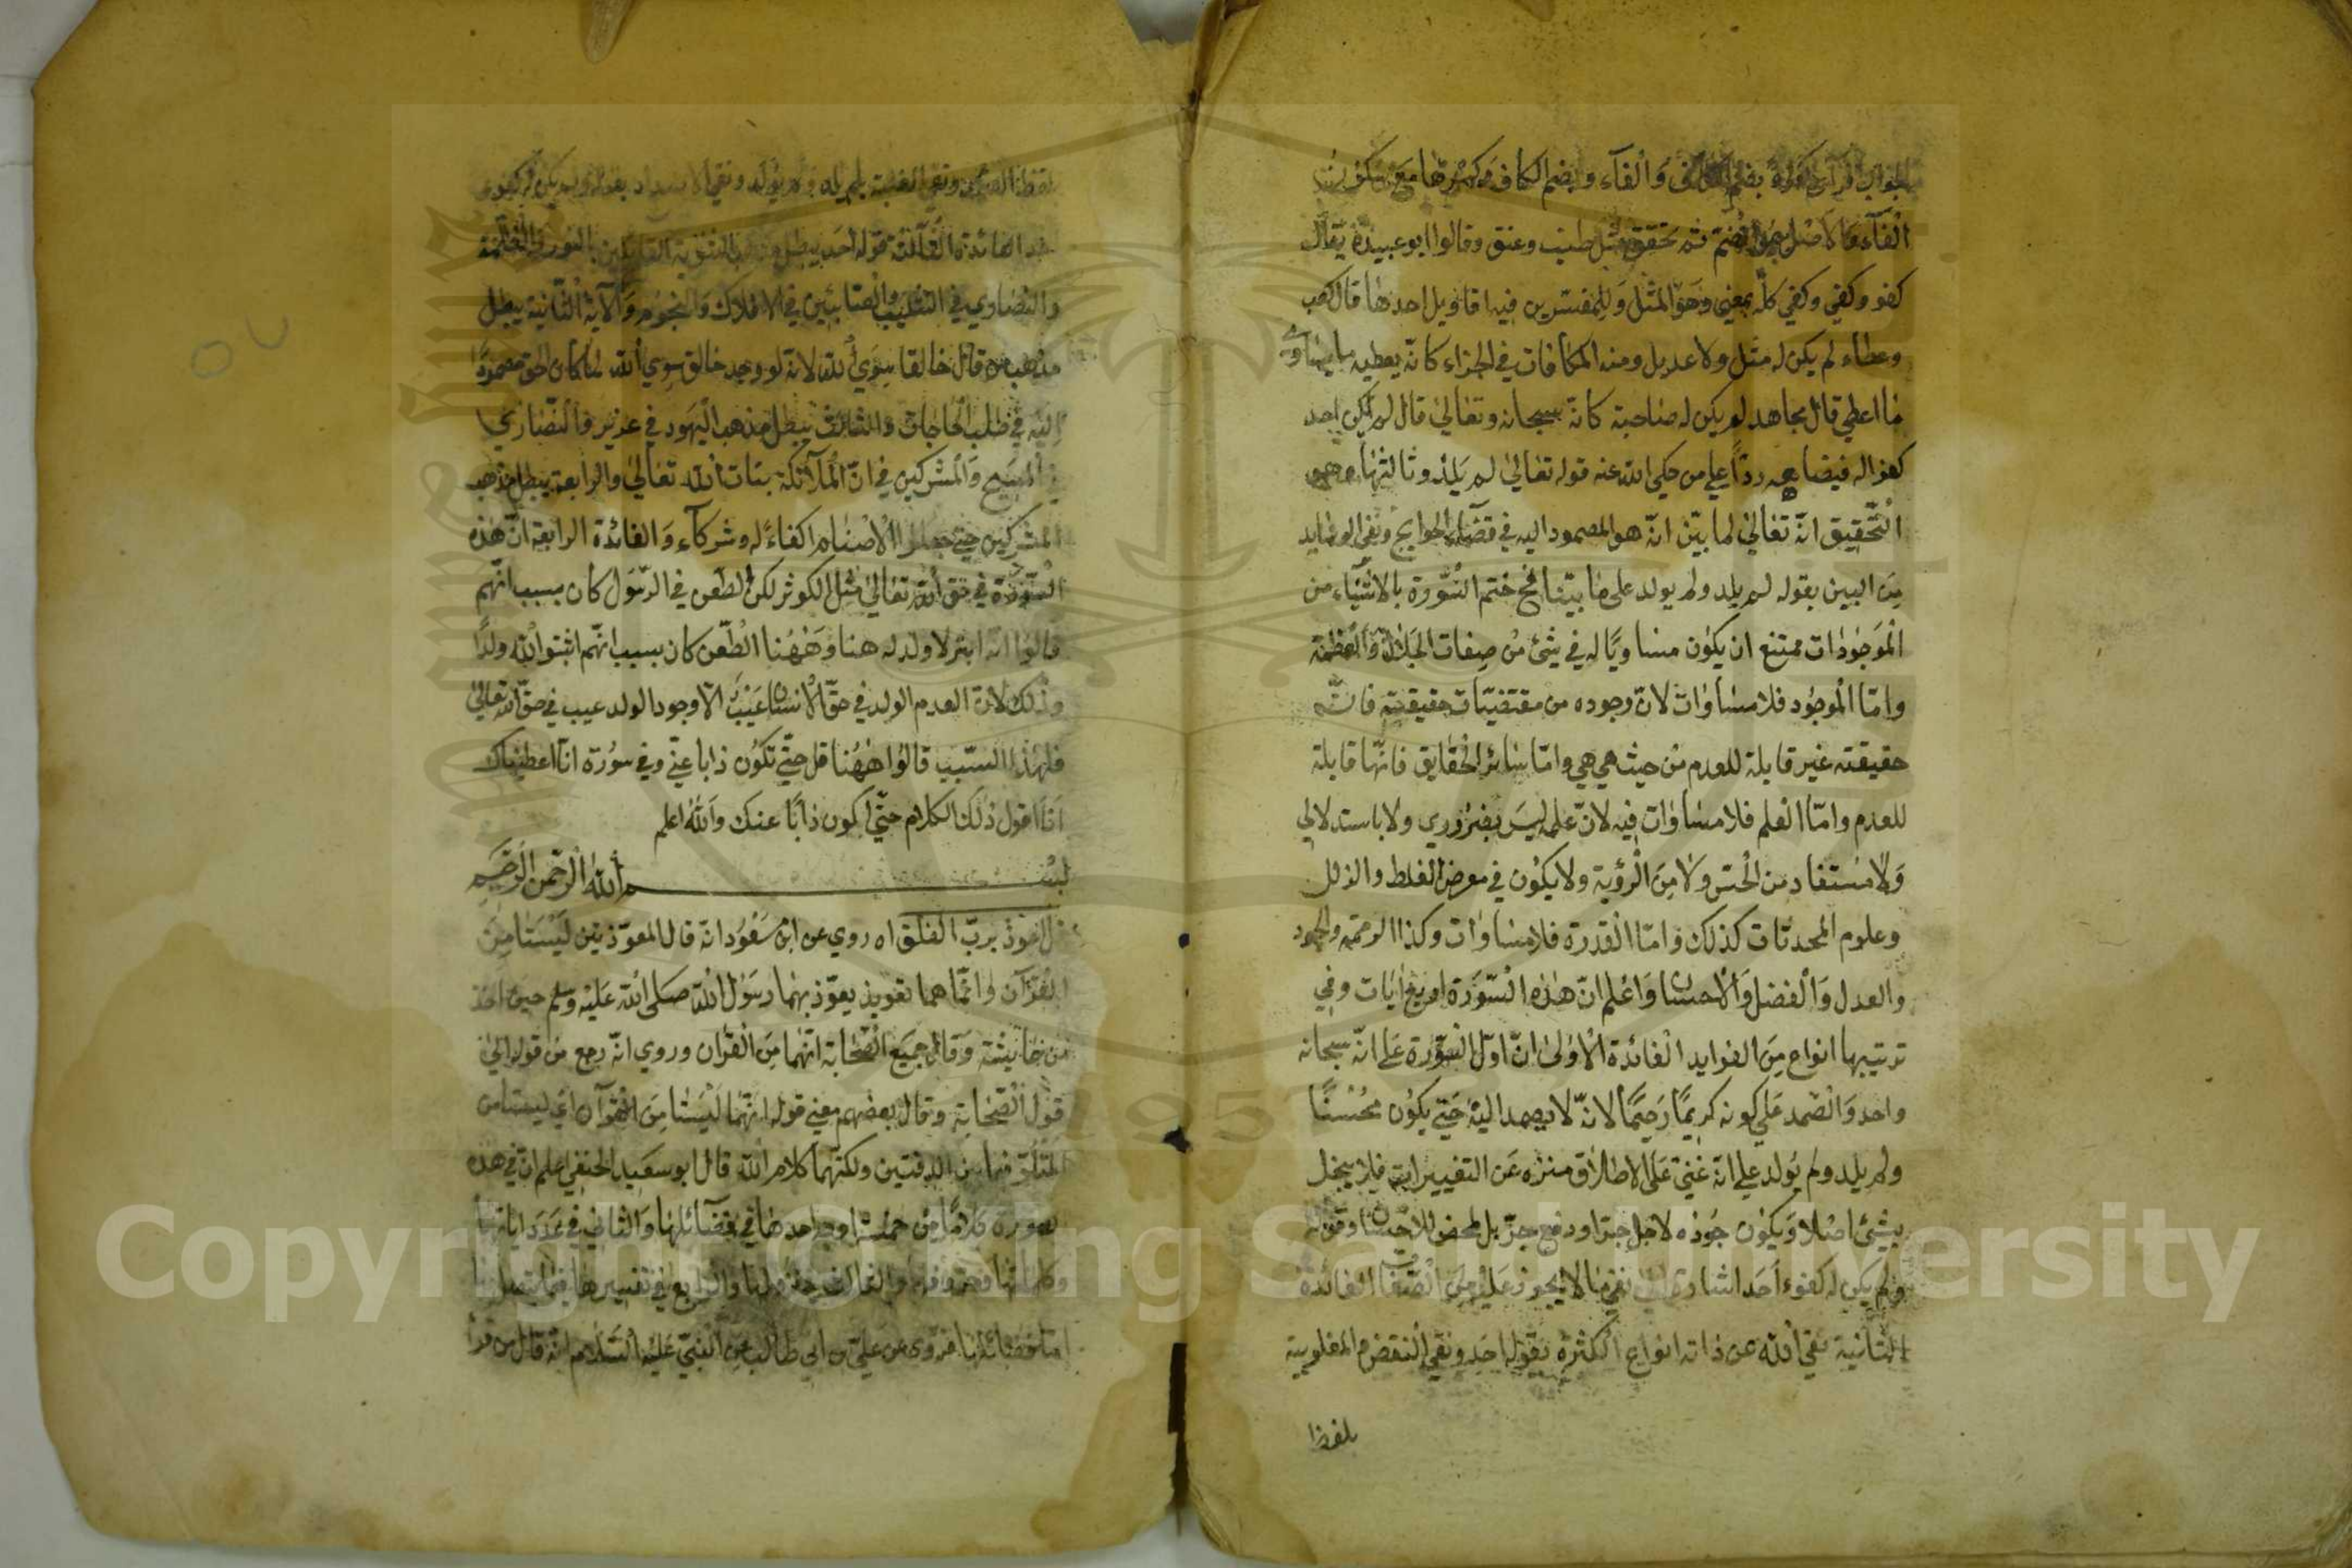 بضم الكاف وَالفآء وبضم الكاف وكسرها مع سكون
الفآء والاصل هو الضم ثم تخفف مثل طنب وعنق وقالوا ابو عبيدة يقال
كفو وكفي وكفي كلّه بمعنى وهو المثل وَللمفسّرين فيه اقاويل احدها قال كعب
وعطاء لم يكن له مثل ولا عديل ومنه المكافات في الجزاء كانّه يعطيه ما يساوى
ما اعطي قال مجاهد لم يكن له صاحبة كانّه سبحانه وتعالى قال لم يكن احد
كفوا له فيصاهره ردّاً علي من حكي الله عنه قوله تعالى لم يَلد وثالثها وهو
التّحقيق انّه تعالى لما بيّن انّه هو المصمود اليه في قضآء الحوايج ونفى الوسايد
مِنَ البين بقوله لم يلد ولم يولد على ما بيّنا فح ختم السُّورة بالاشيَاء من
الموَجوُدات ممتنع ان يكون مساويًا له في شئ من صِفات الجَلال وَالعظمة
وامّا الموجُود فلا مسَاوات لانّ وجوده من مقتضيَات حقيقته فانّ
حقيقته غير قابلة للعدم من حيث هي هي وامّا سَائر الحقايق فانّها قابلة
للعدم وامّا العلم فلا مساوات فيه لانّ علمه ليسَ بضرُوري ولا باستدلالي
وَلا مستفاد من الحسّ ولا مِنَ الرؤية ولا يكوُن في معرض الغلط والزلل
وعلوم المحدثات كذلك وامّا القدرة فلا مساوات وكذا الرحمة والجود
والعدل وَالفضل وَالاحسان وَاعلم انّ هذه السّوَرَة اربع ايَات وفي
ترتيبها انواع مِنَ الفوايد الفائدة الاولى انّ اوّل السّورة عَلى انّه سبحانه
واحد وَالصّمد عَلي كونه كريمًا رَحِيمًا لانّه لا يصمد اليه حَتي يكوُن محُسنًا
ولم يلد ولم يُولد علي انّه غنيّ عَلى الاطلاق منزه عَن التغييرات فلا يبخل
بشئ اصلا وَيكوُن جُوده لاجل جرّ او دفع جرّ بل لمحض الاحسان وقوله
ولم يكن له كفوء اَحَد اشارة الى نفي ما لا يجوز عَليه مِنَ الصّفات الفائدة
الثانية نفي الله عن ذاته انواع الكثرة بقوله احَد ونفي النقض والمغلوبية
بلفظ
بلفظ الصّمد ونفي بلم يلد ولم يولد ونفي الانداد بقوله ولم يكن له كفوا
الفائدة الثالثة قوله احد يبطل مذهب الثنوية القائلين بالنور والظلمة
والنصَاري في التثليث والصّابئين في الافلاك وَالنجوُم وَالآية الثّانية يبطل
مذهب من قال خالقا سِوَي الله لانه لو وجد خالق سِوي الله لما كان الحق مصموُدًا
اليَه في طلب الحاجات والثالث يبطل مذهب اليَهود في عزير والنّصَاري
في المسيَح وَالمشركين في انّ المَلآئكة بنات الله تعالى والرابعة يبطل مذهب
المشركين حين جعلوا الاصنام اكفاءً له وشركآء وَالفائدة الرابعة انّ هذه
السّورَة في حَق الله تعالى مثل الكوثر لكن الطعن في الرّسَول كان بسبب انّهم
قالوُا انّه ابتر لا ولد له هنا وَههُنا الطّعن كان بسبب انّهم اثبتوا لله ولدًا
وذلك لانّ العدم الولد في حقّ الانسَان عَيْبٌ الاّ وجود الولد عيب في حقّ الله تعالى
فلهذا السّبب قالوُا ههُنا قل حتّي تكوُن ذابا عنّي وفي سوُرة انّا اعطيناك
انَا اقول ذلك الكلام حتّي اكون ذابًا عنك وَالله اعلم
بسم الله الرّحمن الرّحيم
قل اعوذ بربّ الفلق اه روي عن ابن مسعُود انّه قال المعوّذتين ليَستَا مِنَ
القرآن وانّما هما تعويذ يعوّذ بهما رسَوُل الله صَلى الله عَليه وسلم حين اخذ
من خائشة وَقال جميَع الصّحابة انّهما مِنَ القرآن وروي انّه رجع من قوله اليٰ
قول الصّحَابة وقال بعضهم معنى قوله انّهمَا ليْسَتا مِنَ القرآن اي ليستا من
المتلوّ فيما بين الدفتين ولكنّهما كلام الله قال ابو سعَيد الحنفي اعلم انّ في هذه
السورة كلامًا من خمسة اوجه احدها في فضآئلها وَالثاني في عَدَد اياتها
وكلماتها وحروفها والثالث في نزولها والرابع في تفسيرها
امّا فضَائلها فروى عن عليّ بن ابي طالب عن النبيّ عَليه السّلام انّه قال من قرأ